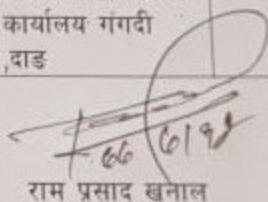 कार्यालय गंगदी
,दाङ
राम प्रसाद खनाल